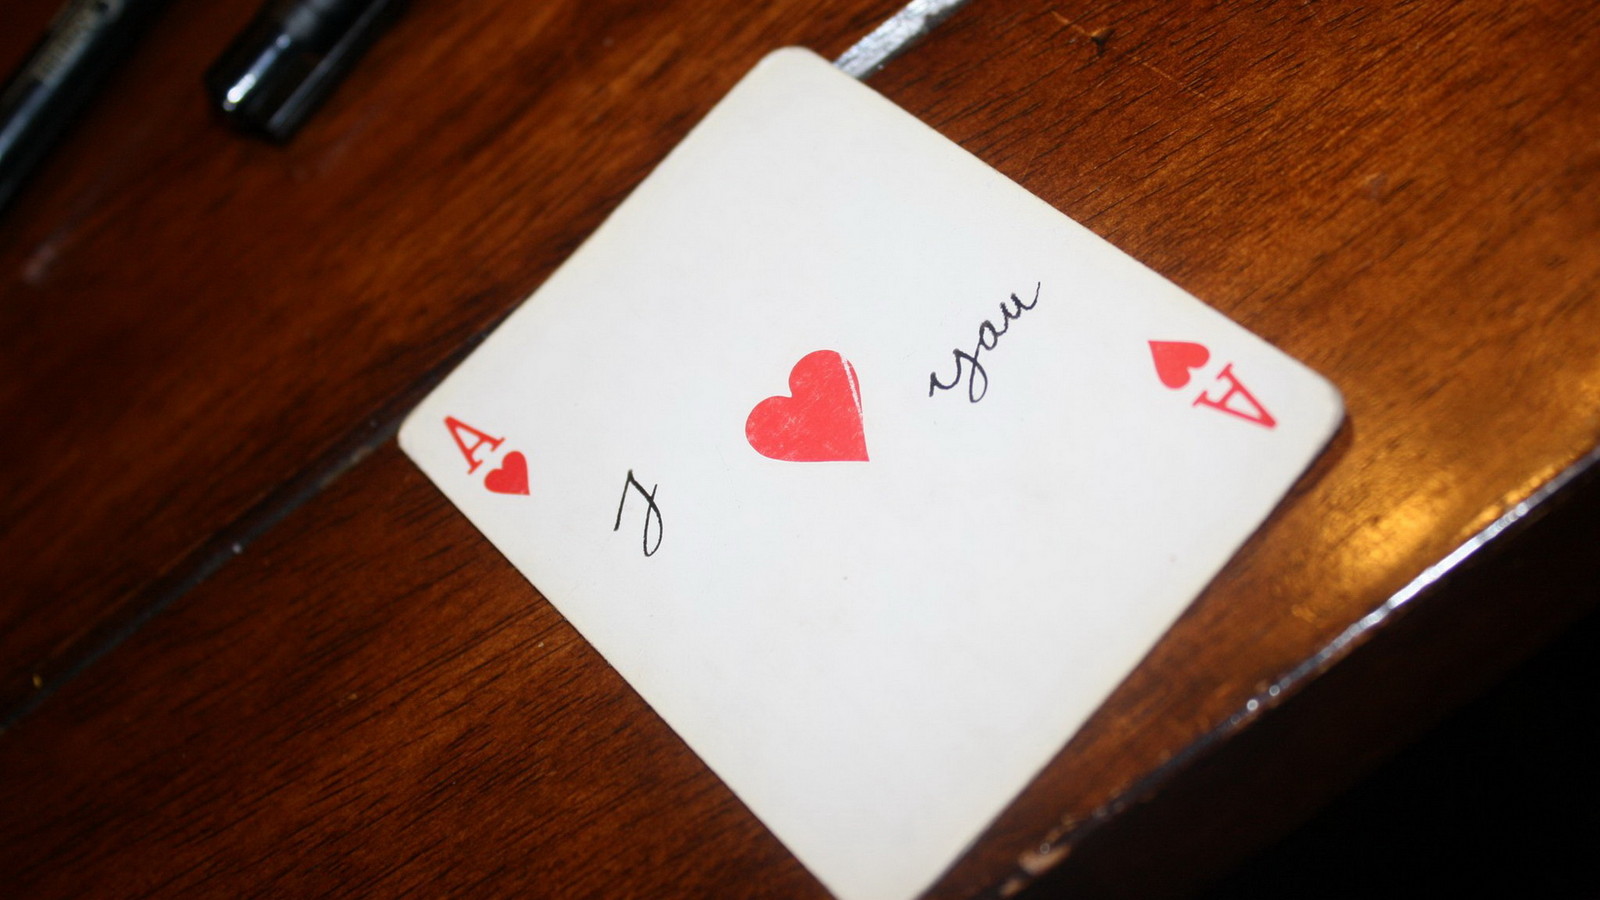 A
I ♥ you
A